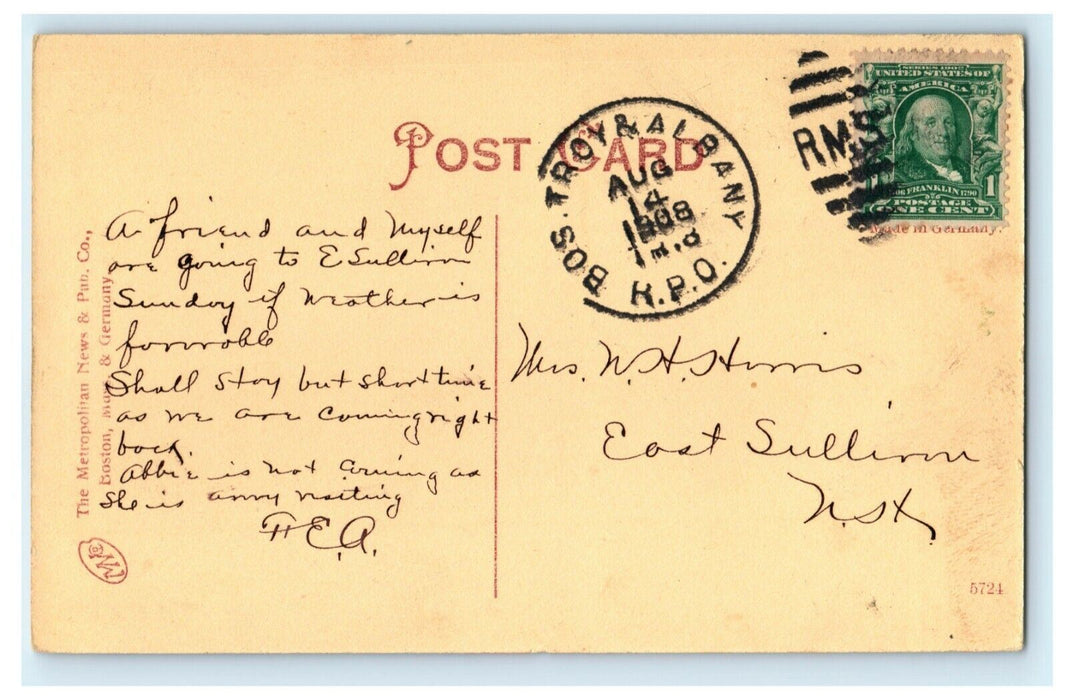 POST CARD
BOS. TROY & ALBANY
AUG
14
1908
R.P.O.
RMS
SERIES 1902
UNITED STATES OF
AMERICA
FRANKLIN 1790
POSTAGE
1
ONE CENT
Made in Germany.
The Metropolitan News & Pub. Co.,
Boston, Mass. & Germany
A friend and Myself
are going to E Sullivan
Sunday if Weather is
favorable
Shall stay but short time
as we are coming right
back.
Abbie is not coming as
She is away visiting
F E. A.
Mrs. W. H. Harris
East Sullivan
N. H.
5724